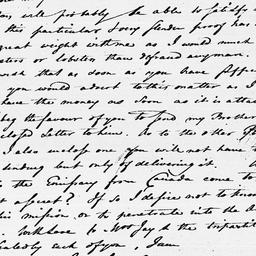 will probably be able to satisfy
this particular. Very slender proof has
great weight with me as I would much
or lobster than defraud any man.
wish that as soon as you have suffic
you would advert to this matter as I
have the money as soon as it is attai
beg the favour of you to send my Brother
closed Letter to him. As to the other
I also inclose one you will not have t
sending but only of delivering it.
to the Emissary from Canada come to
a secret? If so I desire not to know
his mission, or to penetrate into the
to Mrs Jay & the tripartit
each of you, I am